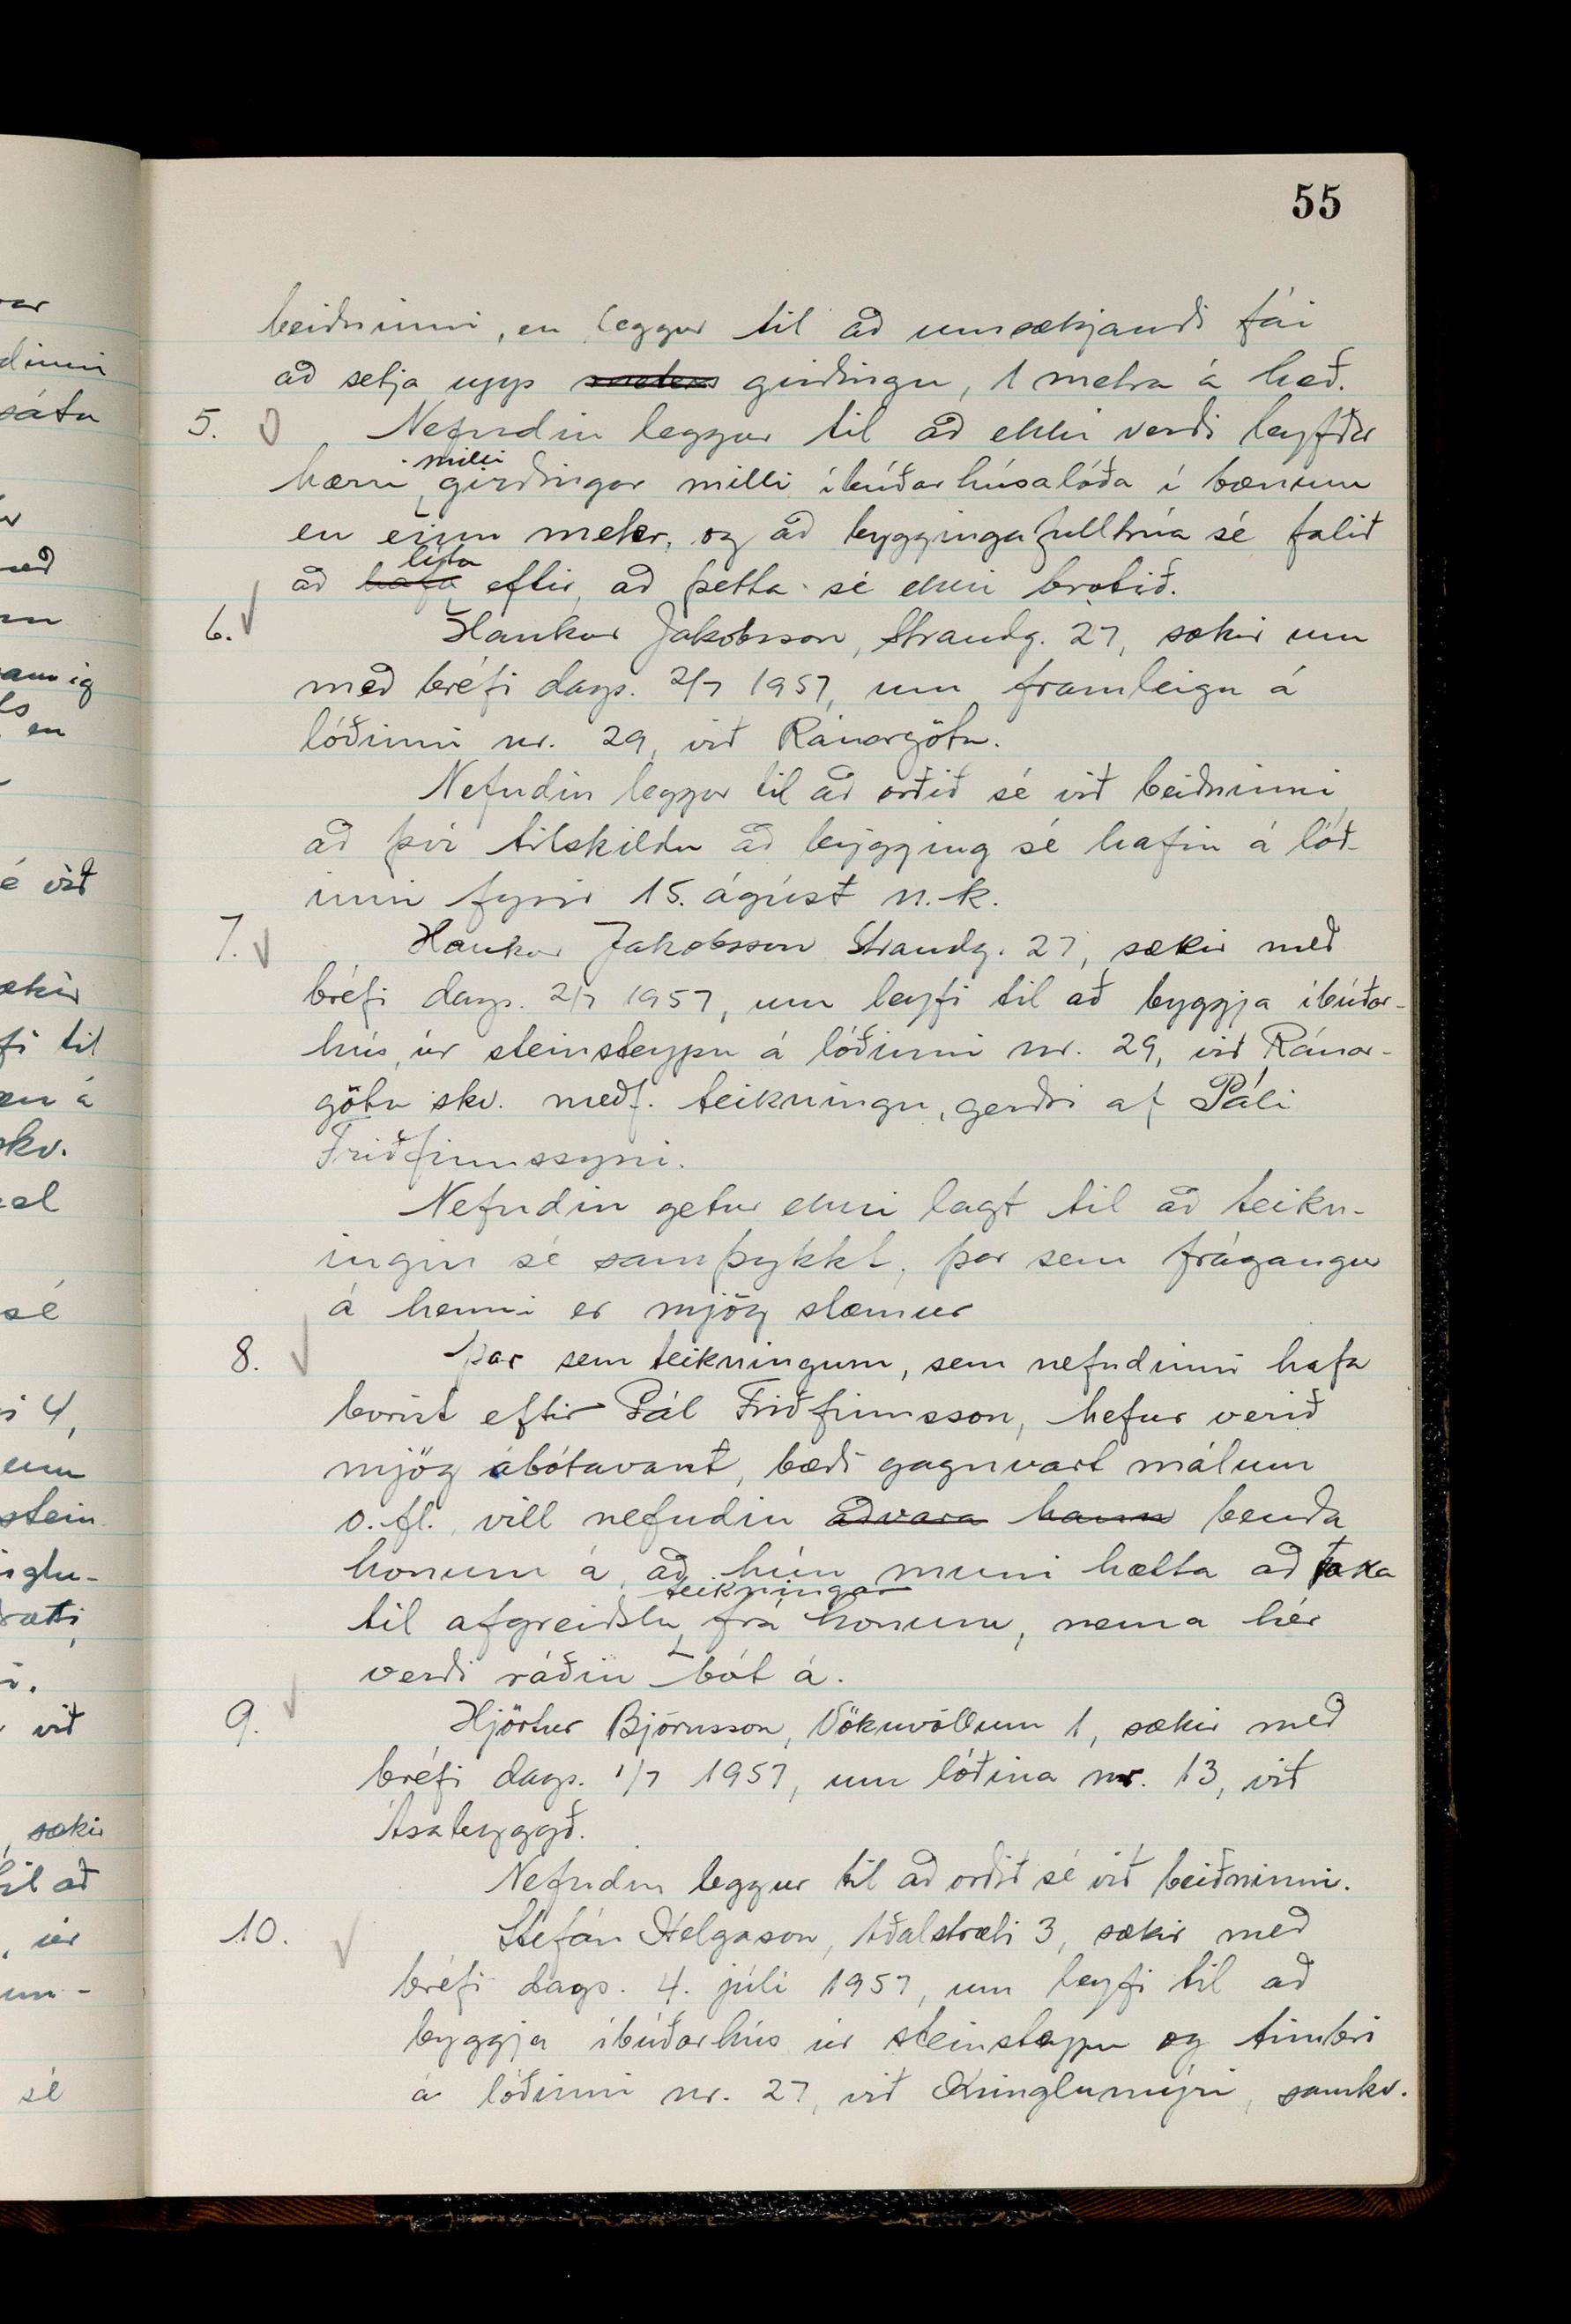 55
beiðninni, en leggur til að umsækjandi fái
að setja upp girðingu, 1 metra á hæð.
5. Nefndin leggur til að ekki verði leyfðar
hærri milli girðingar milli íbúðarhúsalóða í bænum
en einn meter, og að byggingafulltrúa sé falið
að hafa líta eftir, að þetta sé ekki brotið.
6. Haukur Jakobsson, Strandg. 27, sækir um
með bréfi dags. 2/7 1957, um framleigu á
lóðinni nr. 29, við Ránargötu.
Nefndin leggur til að orðið sé við beiðninni,
að því tilskildu að bygging sé hafin á lóð-
inni fyrir 15. ágúst n.k.
7. Haukur Jakobsson Strandg. 27, sækir með
bréfi dags. 2/7 1957, um leyfi til að byggja íbúðar-
hús, úr steinsteypu á lóðinni nr. 29, við Ránar-
götu skv. meðf. teikningu, gerðri af Páli
Friðfinnssyni.
Nefndin getur ekki lagt til að teikn-
ingin sé samþykkt, þar sem frágangur
á henni er mjög slæmur
8. Þar sem teikningum, sem nefndinni hafa
borist eftir Pál Friðfinnsson, hefur verið
mjög ábótavant, bæði gagnvart málum
o.fl. vill nefndin aðvara hann benda
honum á, að hún muni hætta að taka
til afgreiðslu teikningar frá honum, nema hér
verði ráðin bót á.
9. Hjörtur Björnsson, Vökuvöllum 1, sækir með
bréfi dags. 1/7 1957, um lóðina nr. 13, við
Ásabyggð.
Nefndin leggur til að orðið sé við beiðninni.
10. Stefán Helgason, Aðalstræti 3, sækir með
bréfi dags. 4. júlí 1957, um leyfi til að
byggja íbúðarhús úr steinsteypu og timbri
á lóðinni nr. 27, við Kringlumýri, samkv.